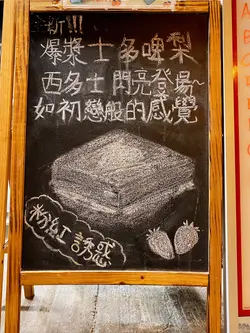 新!!!
爆漿士多啤梨
西多士閃亮登場~
如初戀般的感覺
粉紅誘惑